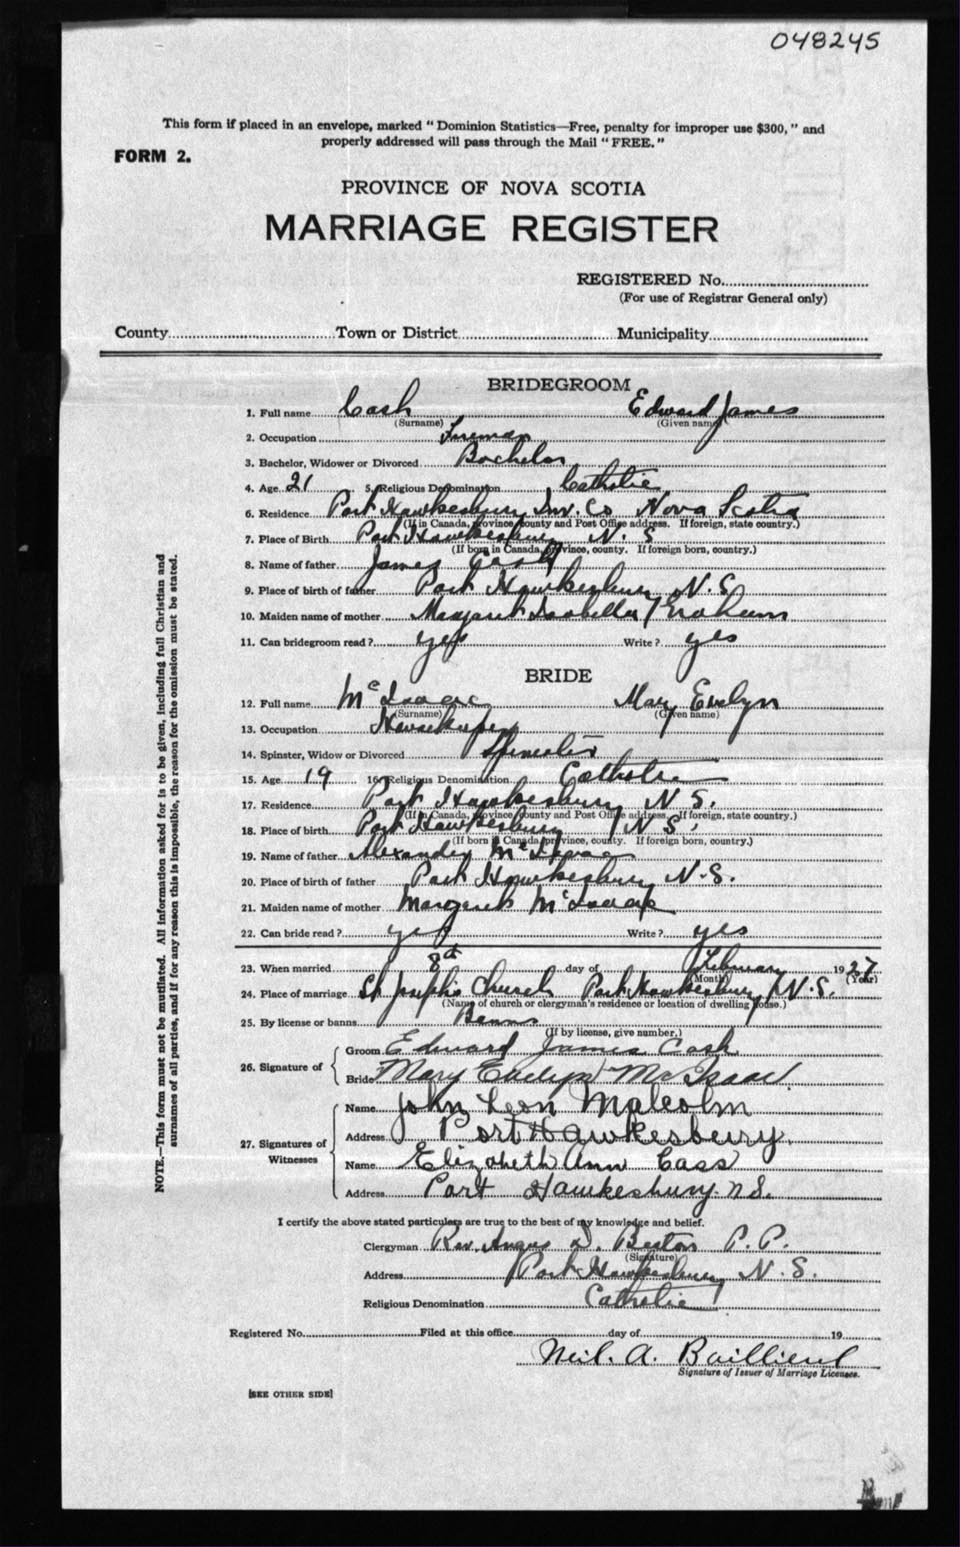 048245
This form if placed in an envelope, marked "Dominion Statistics—Free, penalty for improper use $300," and
properly addressed will pass through the Mail "FREE."
FORM 2.
PROVINCE OF NOVA SCOTIA
MARRIAGE REGISTER
REGISTERED No.
(For use of Registrar General only)
County Town or District Municipality
BRIDEGROOM
1. Full name Cash Edward James
(Surname) (Given name)
2. Occupation Fireman
3. Bachelor, Widower or Divorced Bachelor
4. Age 21 5. Religious Denomination Catholic
6. Residence Port Hawkesbury Inv. Co Nova Scotia
(If in Canada, province, county and Post Office address. If foreign, state country.)
7. Place of Birth Port Hawkesbury N. S
(If born in Canada, province, county. If foreign born, country.)
8. Name of father James Cash
9. Place of birth of father Port Hawkesbury N. S.
10. Maiden name of mother Margaret Isabella Graham
11. Can bridegroom read? yes Write? yes
BRIDE
12. Full name McIsaac Mary Evelyn
(Surname) (Given name)
13. Occupation Housekeeper
14. Spinster, Widow or Divorced Spinster
15. Age 19 16. Religious Denomination Catholic
17. Residence Port Hawkesbury N. S.
(If in Canada, province, county and Post Office address. If foreign, state country.)
18. Place of birth Port Hawkesbury N S.
(If born in Canada, province, county. If foreign born, country.)
19. Name of father Alexander McIsaac
20. Place of birth of father Port Hawkesbury N. S.
21. Maiden name of mother Margaret McIsaac
22. Can bride read? yes Write? yes
23. When married 8th day of February 1927
(Month) (Year)
24. Place of marriage St Joseph's Church Port Hawkesbury N. S.
(Name of church or clergyman's residence or location of dwelling house.)
25. By license or banns Banns
(If by license, give number.)
26. Signature of
Groom Edward James Cash
Bride Mary Evelyn McIsaac
27. Signatures of Witnesses
Name John Leon Malcolm
Address Port Hawkesbury.
Name Elizabeth Ann Cass
Address Port Hawkesbury. N.S.
I certify the above stated particulars are true to the best of my knowledge and belief.
Clergyman Rev. Angus D. Beaton P. P.
(Signature)
Address Port Hawkesbury N. S.
Religious Denomination Catholic
Registered No. Filed at this office day of 19
Neil. A.
Signature of Issuer of Marriage Licenses.
[SEE OTHER SIDE]
NOTE.—This form must not be mutilated. All information asked for is to be given, including full Christian and
surnames of all parties, and if for any reason this is impossible, the reason for the omission must be stated.